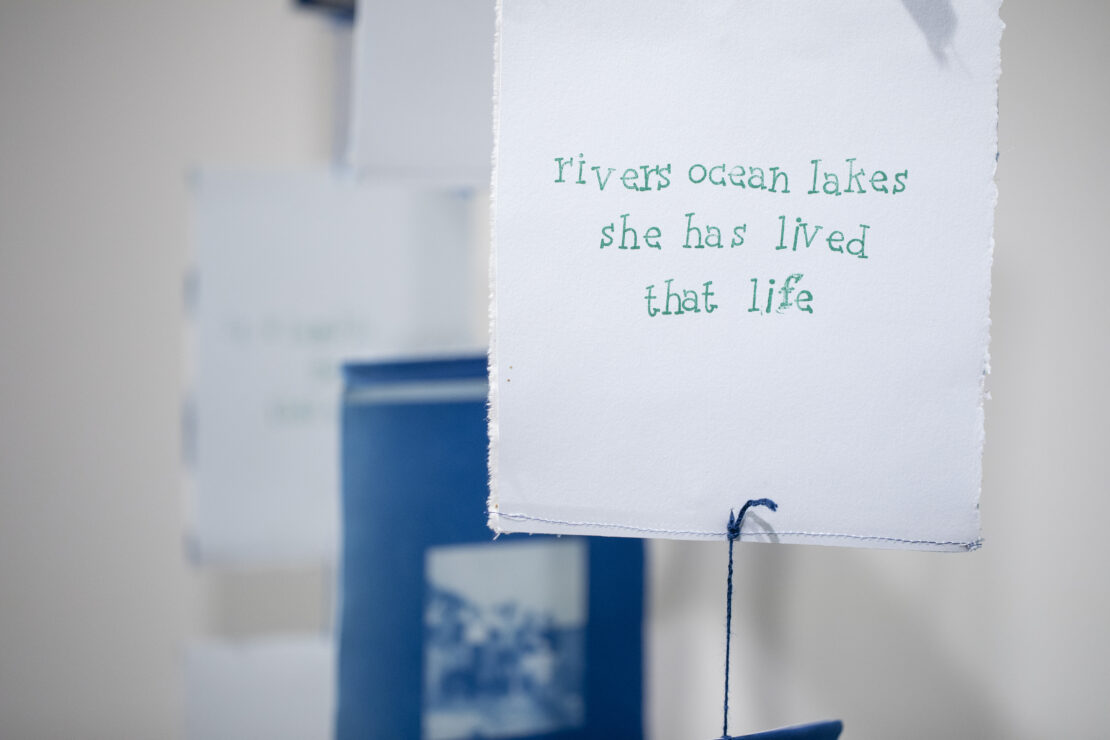 rivers ocean lakes
she has lived
that life